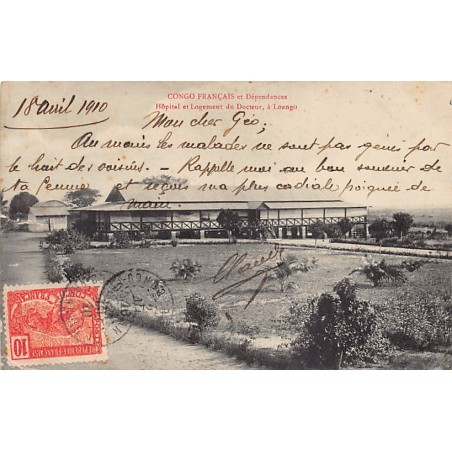 CONGO FRANÇAIS et Dépendances
Hôpital et Logement du Docteur, à Loango
18 avril 1910
Mon cher Géo,
Au moins les malades ne sont pas génés par
le bruit des voisins. Rappelle moi au bon souvenir de
ta femme et reçois ma plus cordiale poignée de
main.
10